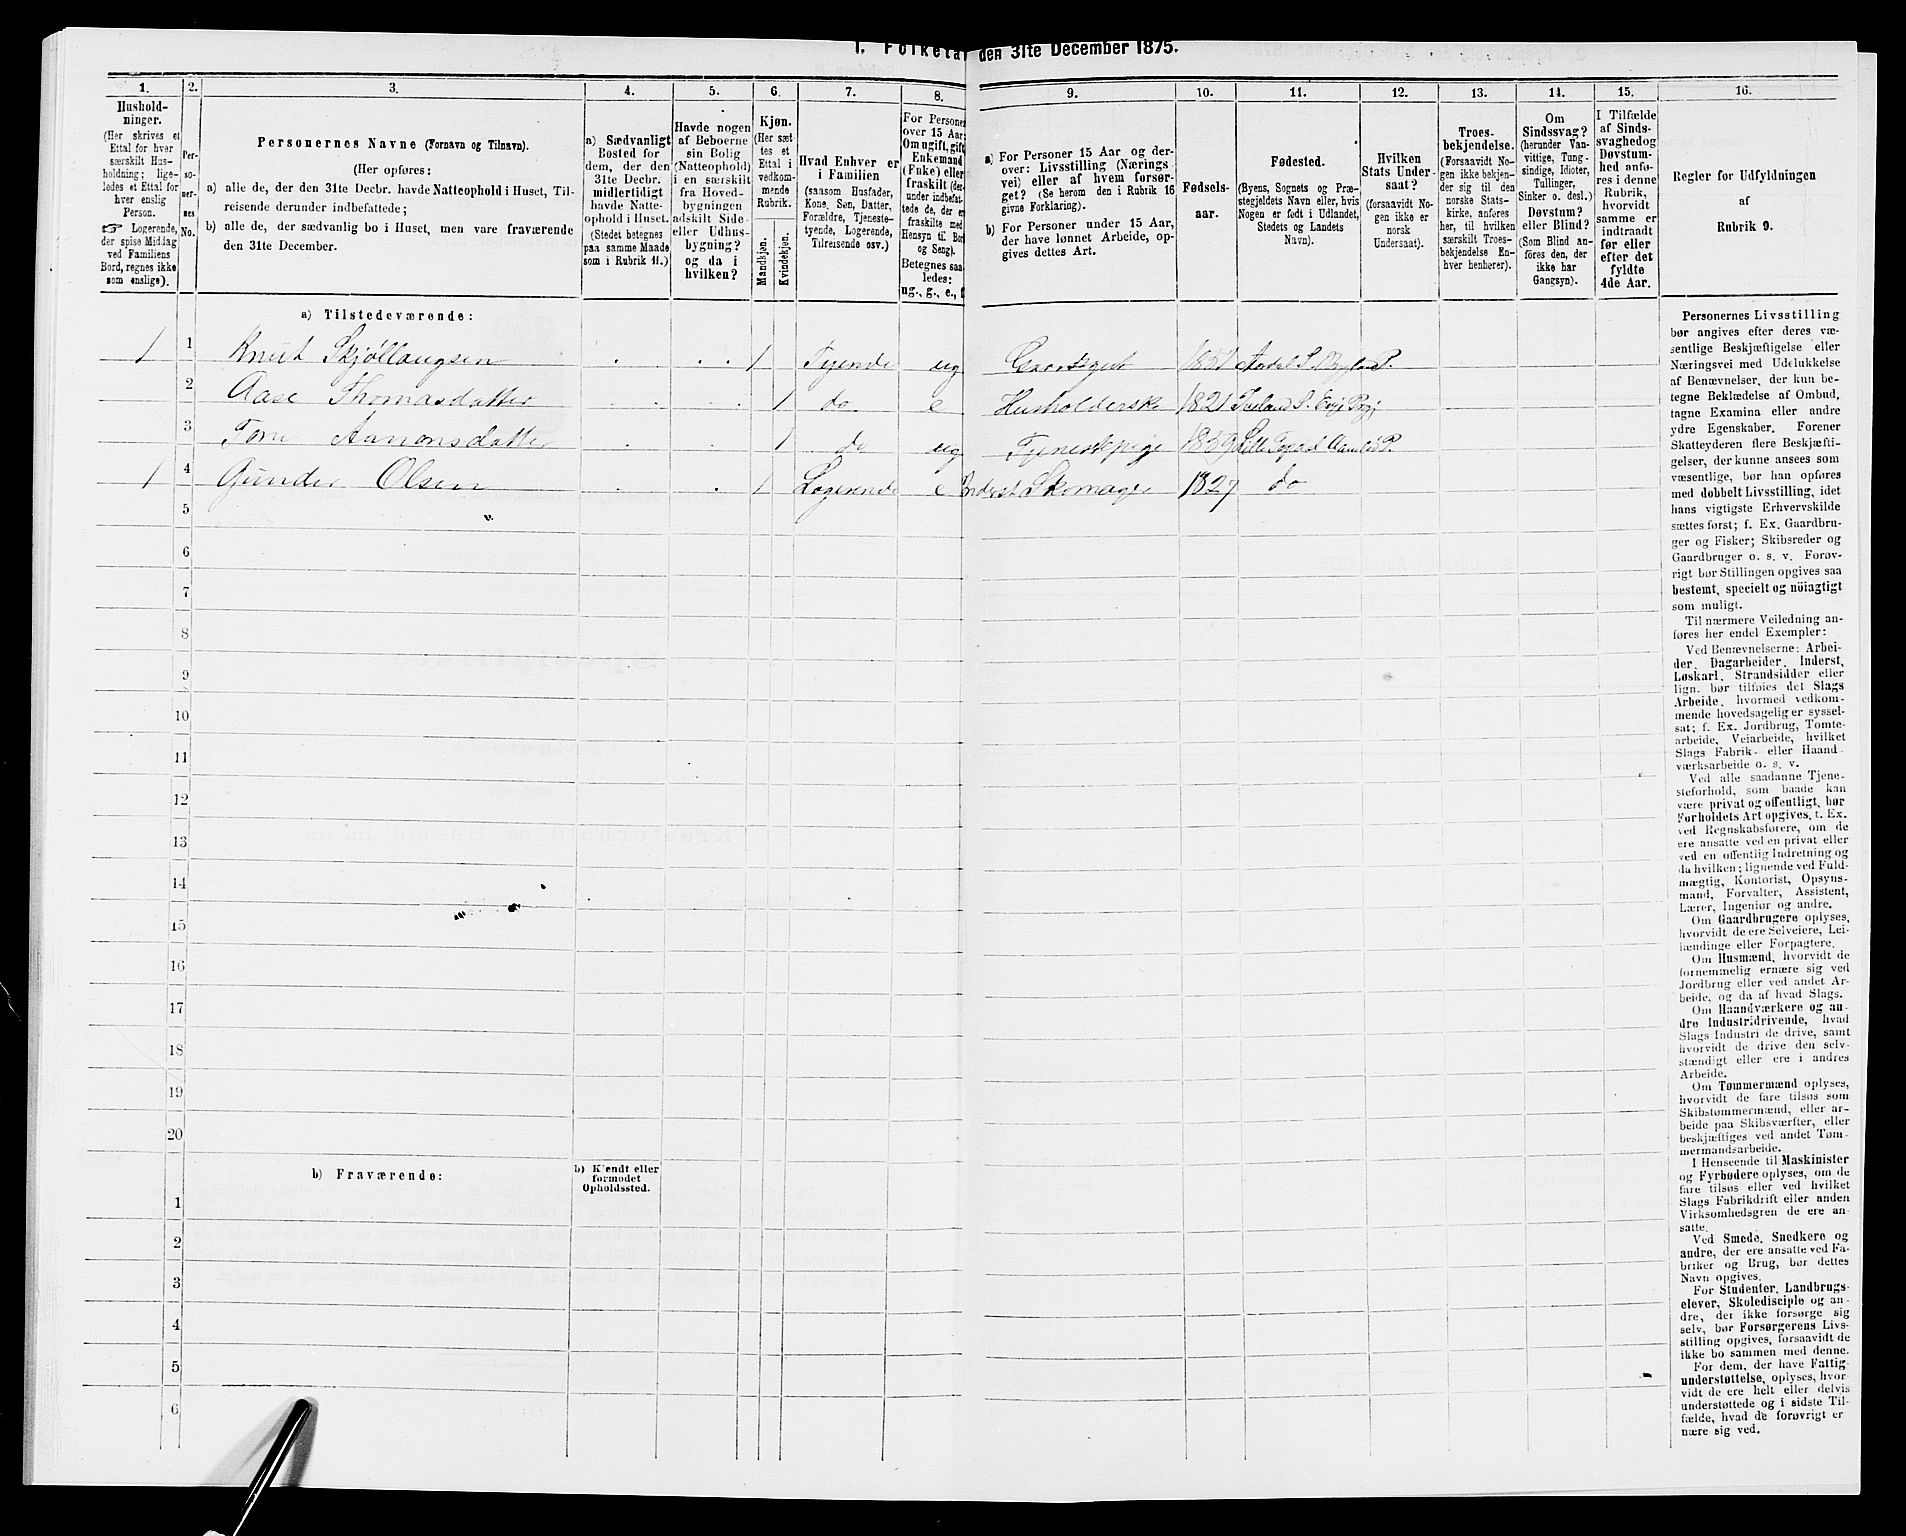 1. Folketal den 31te December 1875.
1. 2. 3. 4. 5. 6. 7. 8. 9. 10. 11. 12. 13. 14. 15. 16.
Hushold-
ninger.
(Her skrives et
Ettal for hver
særskilt Hus-
holdning; lige-
ledes et Ettal for
hver enslig
Person.
☞ Logerende,
der spise Middag
ved Familiens
Bord, regnes ikke
som enslige).
Per-
so-
ner-
nes
No.
Personernes Navne (Fornavn og Tilnavn).
(Her opføres:
a) alle de, der den 31te Decbr. havde Natteophold i Huset, Til-
reisende derunder indbefattede;
b) alle de, der sædvanlig bo i Huset, men vare fraværende
den 31te December.
a) Sædvanligt
Bosted for
dem, der den
31te Decbr.
midlertidigt
havde Natte-
ophold i Huset.
(Stedet betegnes
paa samme Maade
som i Rubrik 11.)
Havde nogen
af Beboerne
sin Bolig
(Natteophold)
i en særskilt
fra Hoved-
bygningen
adskilt Side-
eller Udhus-
bygning?
og da i
hvilken?
Kjøn.
(Her sæt-
tes et
Ettal i
vedkom-
mende
Rubrik.
Mandkjøn.
Kvindekjøn.
Hvad Enhver er
i Familien
(saasom Husfader,
Kone, Søn, Datter,
Forældre, Tjeneste-
tyende, Logerende,
Tilreisende osv.)
For Personer
over 15 Aar:
Om ugift, gift,
Enkemand
(Enke) eller
fraskilt (der-
under indbefat-
tede de, der er
fraskilte med
Hensyn til Bord
og Seng).
Betegnes saa-
ledes:
ug., g., e., f.
a) For Personer 15 Aar og der-
over: Livsstilling (Nærings-
vei) eller af hvem forsør-
get? (Se herom den i Rubrik 16
givne Forklaring).
b) For Personer under 15 Aar,
der have lønnet Arbeide, op-
gives dettes Art.
Fødsels-
aar.
Fødested.
(Byens, Sognets og Præ-
stegjeldets Navn eller, hvis
Nogen er født i Udlandet,
Stedets og Landets
Navn).
Hvilken
Stats Under-
saat?
(forsaavidt No-
gen ikke er
norsk
Undersaat).
Troes-
bekjendelse.
(Forsaavidt No-
gen ikke bekjen-
der sig til den
norske Stats-
kirke, anføres
her, til hvilken
særskilt Troes-
bekjendelse En-
hver henhører).
Om
Sindssvag?
(herunder Van-
vittige, Tung-
sindige, Idioter,
Tullinger,
Sinker o. desl.)
Døvstum?
eller Blind?
(Som Blind an-
føres den, der
ikke har
Gangsyn).
I Tilfælde
af Sinds-
svaghed og
Døvstum-
hed anfø-
res i denne
Rubrik,
hvorvidt
samme er
indtraadt
før eller
efter det
fyldte
4de Aar.
Regler for Udfyldningen
af
Rubrik 9.
a) Tilstedeværende:
1 1 Knut Skjøllaugsen 1 Tjende ug Gaardsgut 1851 Aardal S. Bygland P.
2 Aase Thomasdatter 1 do e Husholderske 1821 S. Evje Prgj
3 Tone Aanonsdatter 1 do ug Tjenestepige 1859 Lille Topdal Aamlid P.
1 4 Gunder Olsen 1 Logerende e Inderst Skomager 1827 do
5
6
7
8
9
10
11
12
13
14
15
16
17
18
19
20
b) Fraværende:
b) Kjendt eller
formodet
Opholdssted.
1
2
3
4
5
6
Personernes Livsstilling
bør angives efter deres væ-
sentlige Beskjæftigelse eller
Næringsvei med Udelukkelse
af Benævnelser, der kun be-
tegne Beklædelse af Ombud,
tagne Examina eller andre
ydre Egenskaber. Forener
Skatteyderen flere Beskjæfti-
gelser, der kunne ansees som
væsentlige, bør han opføres
med dobbelt Livsstilling, idet
hans vigtigste Erhvervskilde
sættes først; f. Ex. Gaardbru-
ger og Fisker; Skibsreder og
Gaardbruger o. s. v. Forøv-
rigt bør Stillingen opgives saa
bestemt, specielt og nöiagtigt
som muligt.
Til nærmere Veiledning an-
føres her endel Exempler:
Ved Benævnelserne: Arbei-
der, Dagarbeider, Inderst,
Løskarl, Strandsidder eller
lign. bør tilføies det Slags
Arbeide, hvormed vedkom-
mende hovedsagelig er syssel-
sat; f. Ex. Jordbrug, Tomte-
arbeide, Veiarbeide, hvilket
Slags Fabrik- eller Haand-
værksarbeide o. s. v.
Ved alle saadanne Tjene-
steforhold, som baade kan
være privat og offentligt, bør
Forholdets Art opgives, t. Ex.
ved Regnskabsførere, om de
ere ansatte ved en privat eller
ved en offentlig Indretning og
da hvilken; lignende ved Fuld-
mægtig, Kontorist, Opsyns-
mand, Forvalter, Assistent,
Lærer, Ingeniør og andre.
Om Gaardbrugere oplyses,
hvorvidt de ere Selveiere, Lei-
lændinge eller Forpagtere.
Om Husmænd, hvorvidt de
fornemmelig ernære sig ved
Jordbrug eller ved andet Ar-
beide, og da af hvad Slags.
Om Haandværkere og an-
dre Industridrivende, hvad
Slags Industri de drive, samt
hvorvidt de drive den selv-
stændigt eller ere i andres
Arbeide.
Om Tømmermænd oplyses,
hvorvidt de fare tilsøs som
Skibstømmermænd, eller ar-
beide paa Skibsværfter, eller
beskjæftiges ved andet Tøm-
mermandsarbeide.
I Henseende til Maskinister
og Fyrbødere oplyses, om de
fare tilsøs eller ved hvilket
Slags Fabrikdrift eller anden
Virksomhedsgren de ere an-
satte.
Ved Smede, Snedkere og
andre, der ere ansatte ved Fa-
briker og Brug, bør dettes
Navn opgives.
For Studenter, Landbrugs-
elever, Skoledisciple og an-
dre, der ikke forsørge sig
selv, bør Forsørgerens Livs-
stilling opgives, forsaavidt de
ikke bo sammen med denne.
For dem, der have Fattig-
understøttelse, oplyses, hvor-
vidt de ere helt eller delvis
understøttede og i sidste Til-
fælde, hvad de forøvrigt er-
nære sig ved.